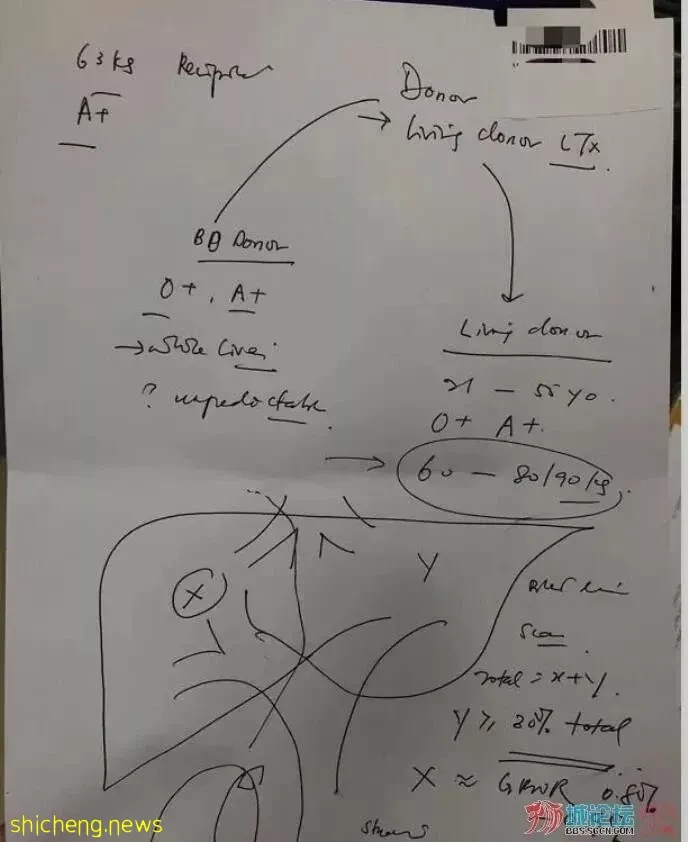 63 kg Recipient
A+
Donor
→ Living donor LTx.
BD Donor
O+, A+
→ whole Liver
?
Living donor
21 - 55 yo.
O+ A+
→ 60 - 80/90 kg.
X
Y
Scan
Total = x+y.
Y ≥ 30% total
X ≈ GRWR 0.8%
shicheng.news
狮城论坛
BBS.SGCN.COM